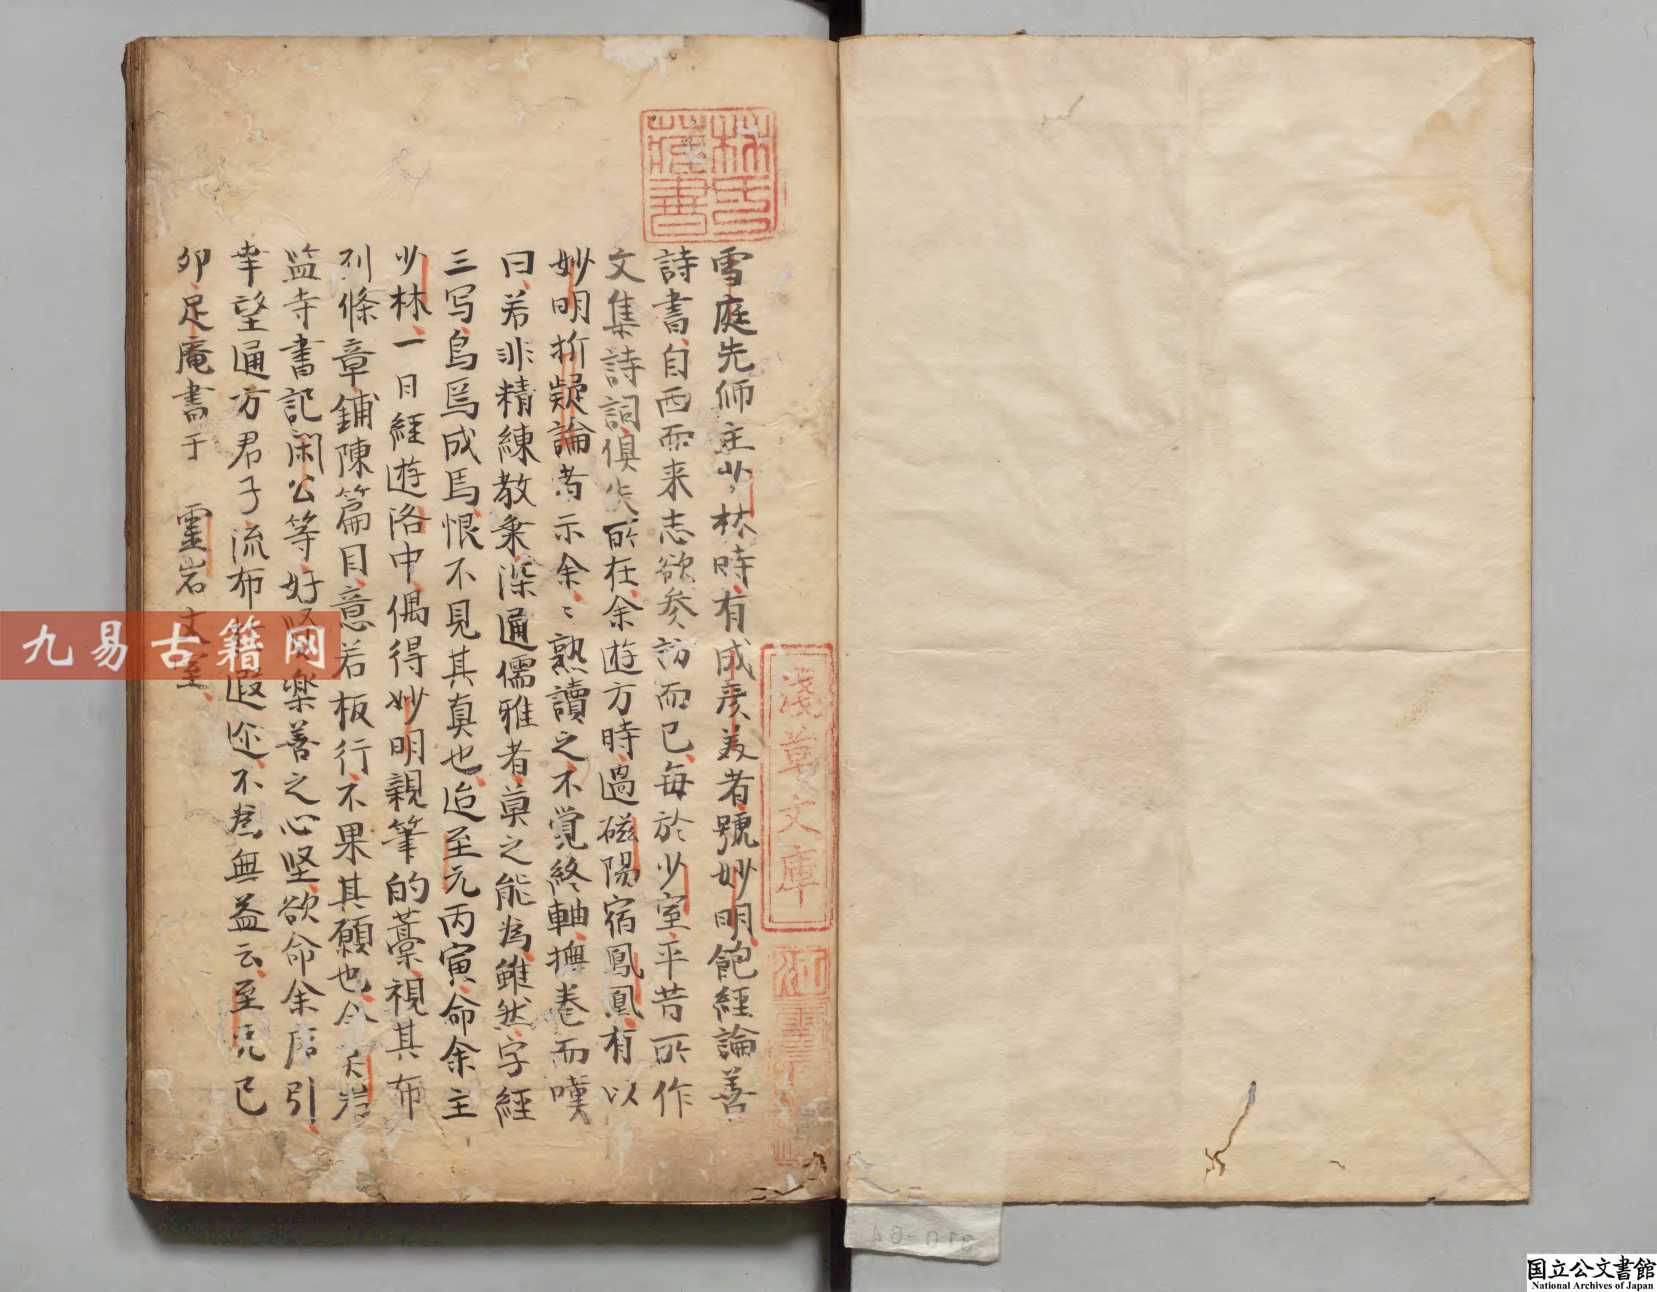 雪庭先師主少林時有成彦美者號妙明飽經論善
詩書自西而来志欲参訪而已每於少室平昔所作
文集詩詞俱失所在余遊方時過磁陽宿鳳凰有以
妙明折疑論者示余〻熟讀之不覚終軸撫卷而嘆
曰若非精練教乗深通儒雅者莫之能為雖然字經
三写烏焉成馬恨不見其真也迨至元丙寅命余主
少林一日經遊洛中偶得妙明親筆的藁視其布
列條章鋪陳篇目意若板行不果其願也今天岩
監寺書記闲公等好 樂善之心坚欲命余序引
幸望通方君子流布 遐迩不為無益云至元己
卯足庵書于 靈岩丈室
林氏藏書
淺草文庫
九易古籍网
国立公文書館
National Archives of Japan